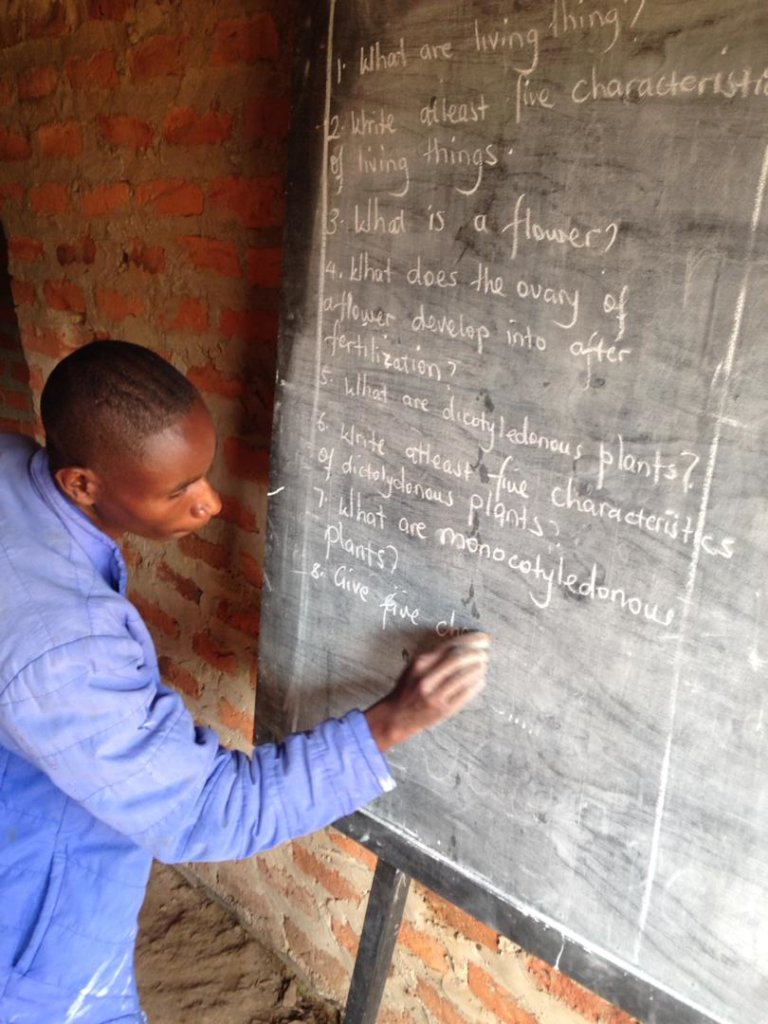 1. What are living thing?
2. Write atleast five characteristic
of living things.
3. What is a flower?
4. What does the ovary of
a flower develop into after
fertilization?
5. What are dicotyledonous plants?
6. Write atleast five characteristics
of dictolydonous plants?
7. What are monocotyledonous
plants?
8. Give five cha